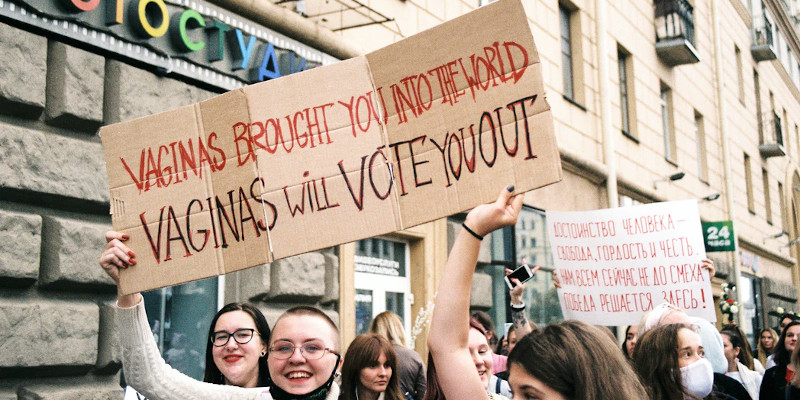 ФОТОСТУДИ
VAGINAS BROUGHT YOU INTO THE WORLD
VAGINAS WILL VOTE YOU OUT
ДОСТОИНСТВО ЧЕЛОВЕКА –
СВОБОДА, ГОРДОСТЬ И ЧЕСТЬ.
НАМ ВСЕМ СЕЙЧАС НЕ ДО СМЕХА
ПОБЕДА РЕШАЕТСЯ ЗДЕСЬ!
24
ЧАСА